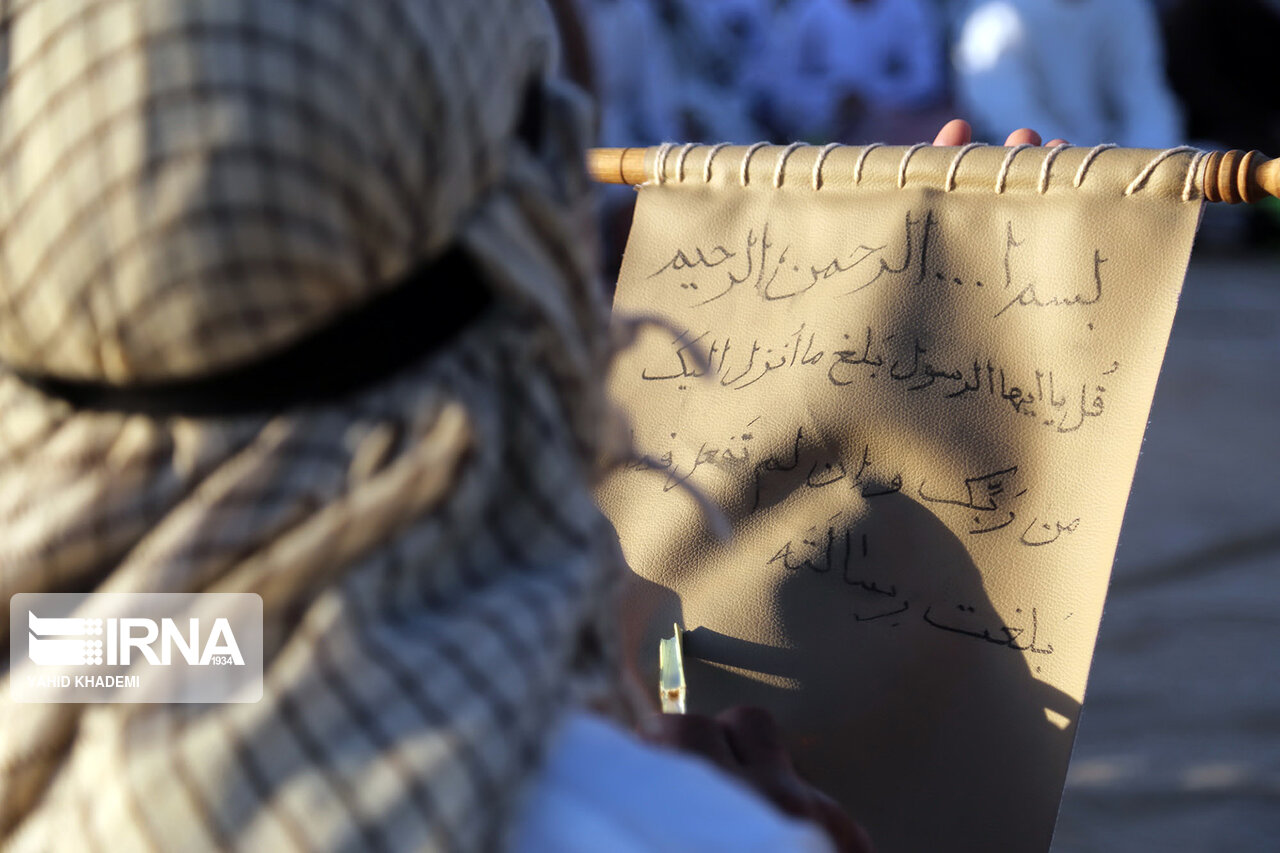 بسم ا... الرحمن الرحیم
قُل یا ایها الرسول بَلغ ما اُنزل الیکَ
من رَبّک و ان لم تَفعل فما
بَلغت رسالَتَه
IRNA
1934
VAHID KHADEMI